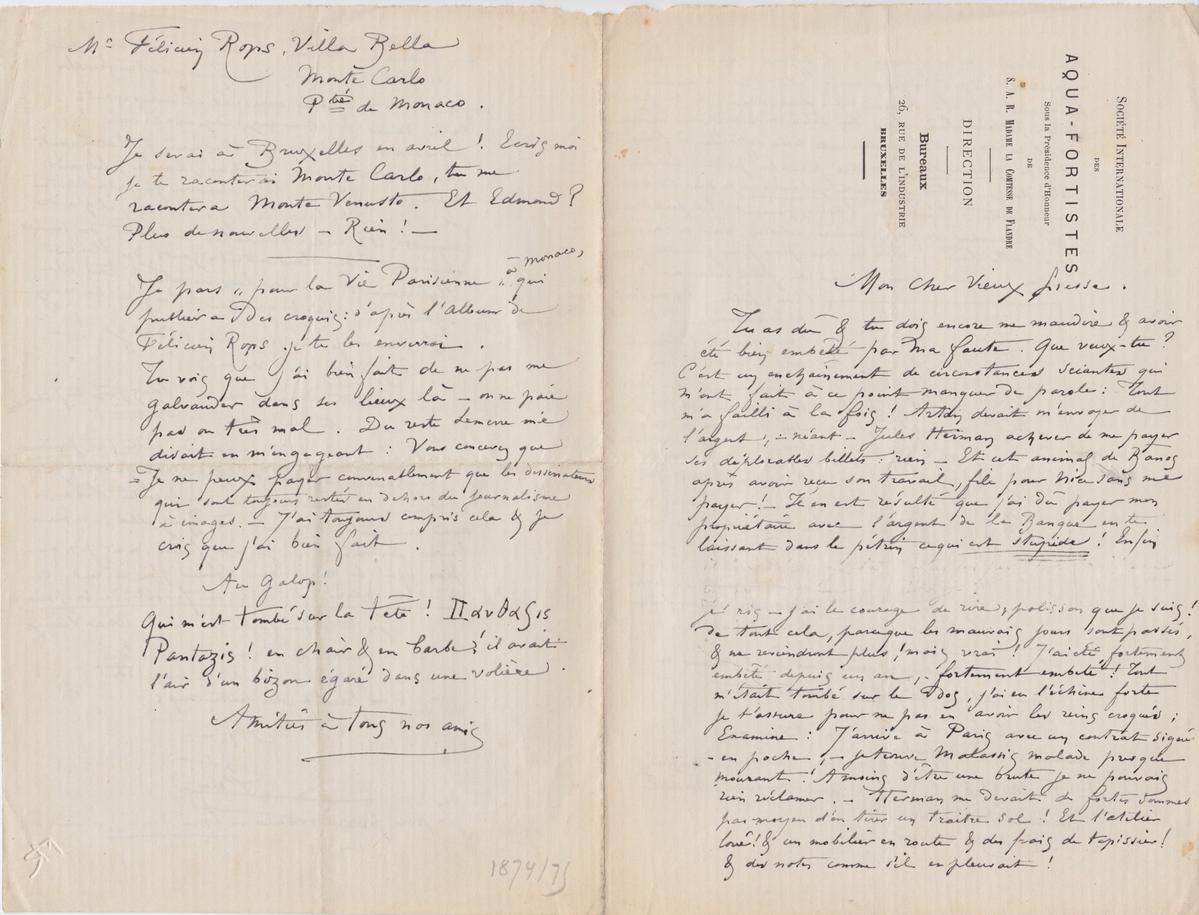 SOCIÉTÉ INTERNATIONALE
DES
AQUA-FORTISTES
Sous la Présidence d'Honneur
DE
S. A. R. MADAME LA COMTESSE DE FLANDRE
DIRECTION
Bureaux
26, RUE DE L'INDUSTRIE
BRUXELLES
Mon cher Vieux
Tu as dû & tu dois encore me maudire & avoir
été bien embêté par ma faute. Que veux-tu ?
C'est un enchaînement de circonstances sciantes qui
m'ont fait à ce point manquer de parole : Tout
m'a failli à la fois ! devait m'envoyer de
l'argent, – néant – Jules Herman achever de me payer
ses déplorables billets : rien – Et cet animal de
après avoir reçu son travail, file pour Nice sans me
payer ! – Il en est résulté que j'ai dû payer mon
propriétaire avec l'argent de la Banque en te
laissant dans le pétrin ce qui est stupide ! Enfin
je ris – j'ai le courage de rire, polisson que je suis !
de tout cela, parceque les mauvais jours sont passés,
& ne reviendront plus ! mais vrai ! J'ai été fortement
embêté depuis un an, – fortement embêté ! Tout
m'était tombé sur le dos, j'ai eu l'échine forte
je t'assure pour ne pas en avoir les reins croqués ;
Examine : J'arrive à Paris avec un contrat signé
– en poche, – je trouve Malassis malade presque
mourant ! A moins d'être une brute je ne pouvais
rien réclamer. – Herman me devait de fortes sommes
pas moyen d'en tirer un traitre sol ! Et l'atelier
loué ! & un mobilier en route & des frais de tapissier !
& des notes comme s'il en pleuvait !
Mr Félicien Rops, Villa Bella
Monte Carlo
Pté de Monaco.
Je serai à Bruxelles en avril ! Ecris moi
je te raconterai Monte Carlo, tu me
racontera Monte Venusto. Et Edmond ?
Plus de nouvelles – Rien ! –
Je pars „ pour la Vie Parisienne „ à Monaco, qui
publiera des croquis : d'après l'Album de
Félicien Rops je te les enverrai.
Tu vois que j'ai bien fait de ne pas me
galvauder dans ses lieux là – on ne paie
pas ou très mal. Du reste Lemerre m'a
disait en m'engageant : Vous concevez que
= Je ne peux payer convenablement que les dessinateurs
qui sont toujours restés en dehors du journalisme
à images. – J'ai toujours compris cela & je
crois que j'ai bien fait.
Au Galop !
Qui m'est tombé sur la tête !
Pantazis ! en chair & en barbe ! il avait
l'air d'un bizon égaré dans une volière.
Amitiés à tous nos amis
1874/75